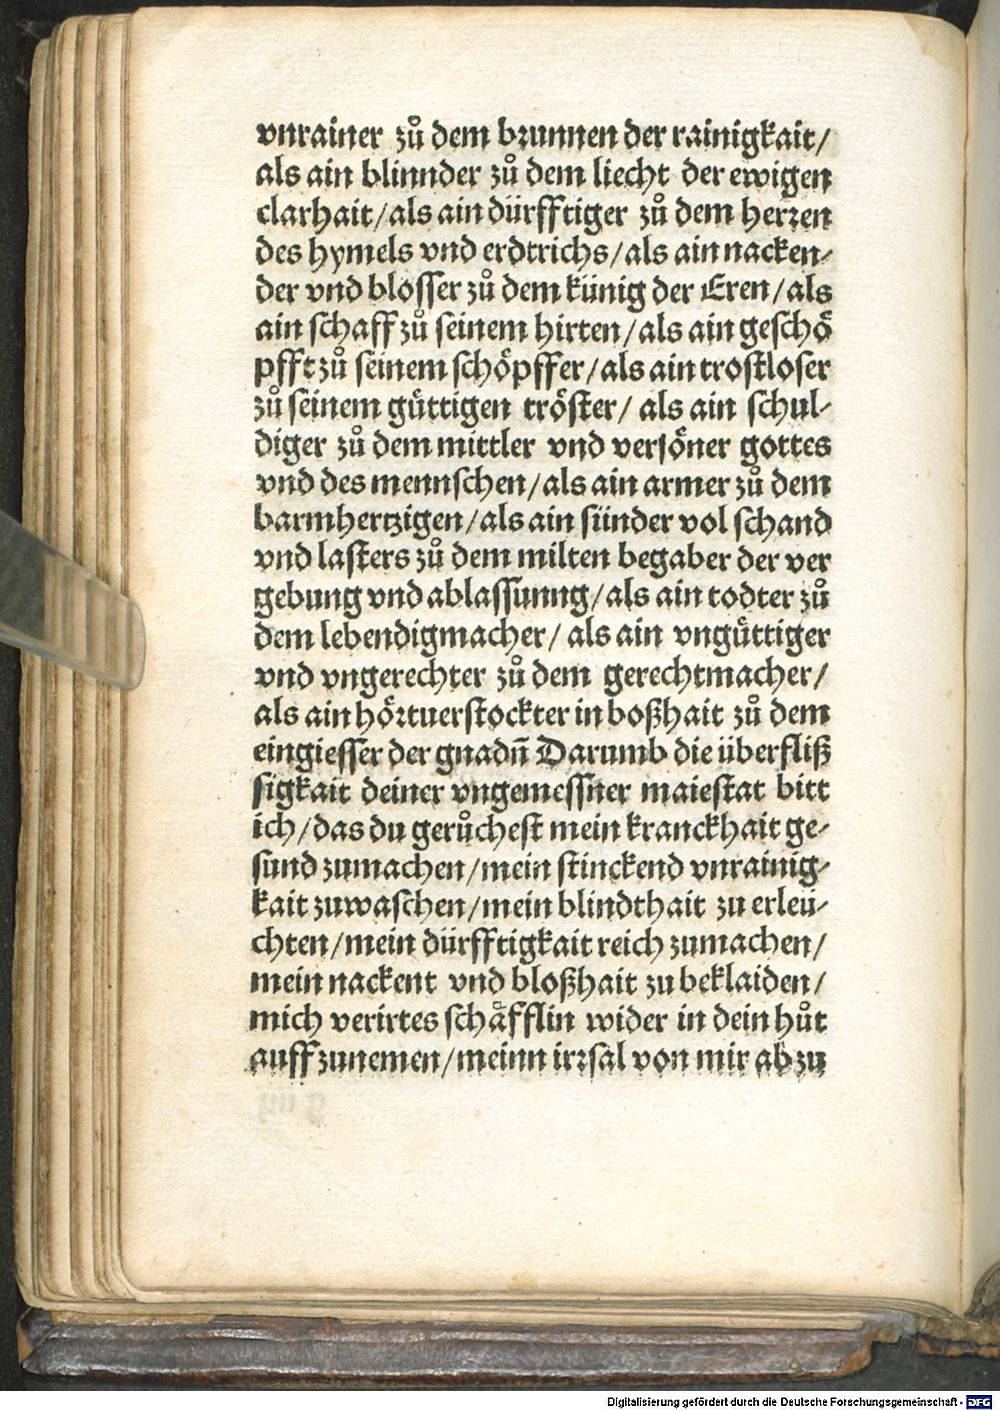 vnrainer zů dem brunnen der rainigkait/
als ain blinnder zů dem liecht der ewigen
clarhait/als ain dürfftiger zů dem herzen
des hymels vnd erdtrichs/als ain nacken⸗
der vnd blosser zů dem künig der Eren/als
ain schaff zů seinem hirten/als ain geschoͤ
pfft zů seinem schoͤpffer/als ain trostloser
zů seinem guͤttigen troͤster/ als ain schul⸗
diger zů dem mittler vnd versoͤner gottes
vnd des mennschen/als ain armer zů dem
barmhertzigen/als ain sünder vol schand
vnd lasters zů dem milten begaber der ver
gebung vnd ablassunng/als ain todter zů
dem lebendigmacher/ als ain vnguͤttiger
vnd vngerechter zů dem gerechtmacher/
als ain hoͤrtuerstockter in boßhait zů dem
eingiesser der gnadn̄ Darumb die überfliß
sigkait deiner vngemessner maiestat bitt
ich/das du gerůchest mein kranckhait ge⸗
sund zumachen/mein stinckend vnrainig⸗
kait zuwaschen/mein blindthait zu erleü⸗
chten/mein dürfftigkait reich zumachen/
mein nackent vnd bloßhait zu beklaiden/
mich verirtes schaͤfflin wider in dein hůt
auffzunemen/meinn irrsal von mir abzu
Digitalisierung gefördert durch die Deutsche Forschungsgemeinschaft - DFG